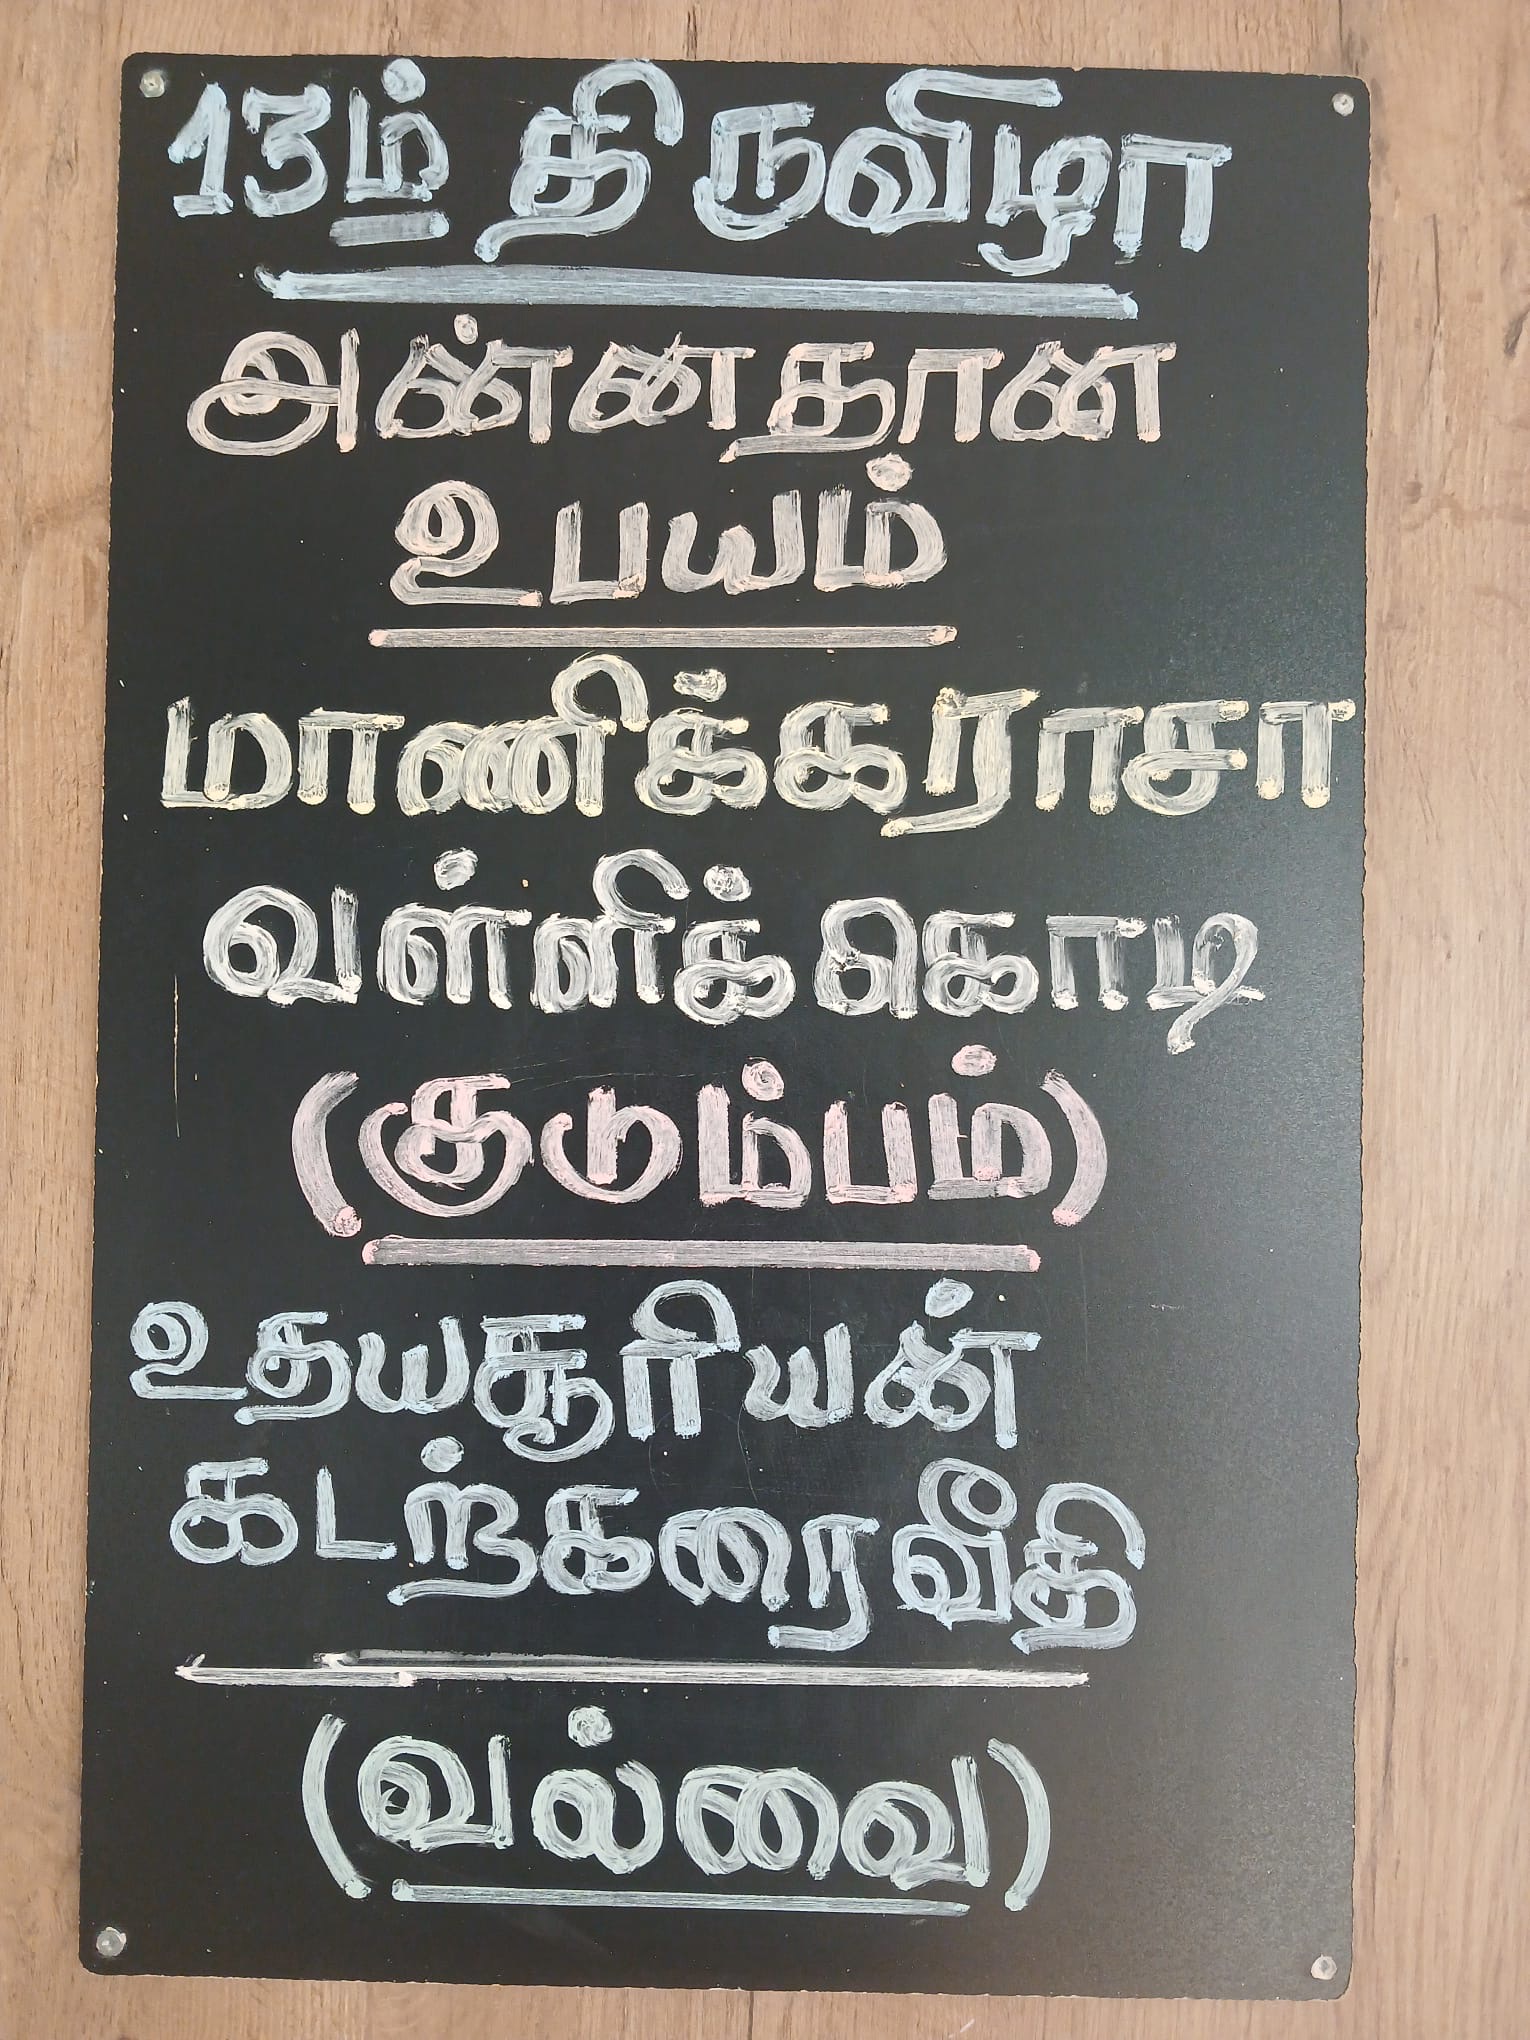 13ம் திருவிழா
அன்னதான
உபயம்
மாணிக்கராசா
வள்ளிக்கொடி
(குடும்பம்)
உதயசூரியன்
கடற்கரைவீதி
(வல்வை)